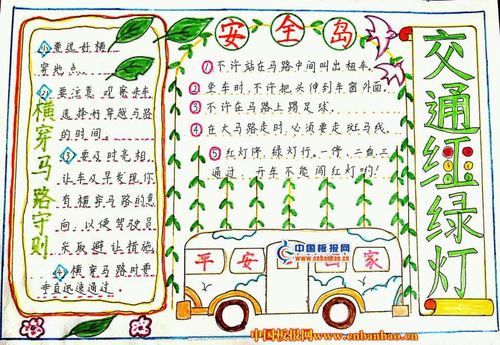 安全岛
①不许站在马路中间叫出租车.
②坐车时,不许把头伸到车窗外面.
③不许在马路上踢足球.
④在大马路走时,必须要走斑马线.
⑤红灯停,绿灯行.一停,二看三
通过.开车不能闯红灯哟!
横穿马路守则
①要选好横
穿地点.
②要注意观察来车
选择好穿越马路
的时间.
③要及时亮相,
让车及早发现你
自横穿马路的意
向,以便驾驶员
采取避让措施.
④横穿马路时要
垂直迅速通过.
交通红绿灯
平安 家
中国板报网
www.cnbanbao.cn
中国板报网www.cnbanbao.cn